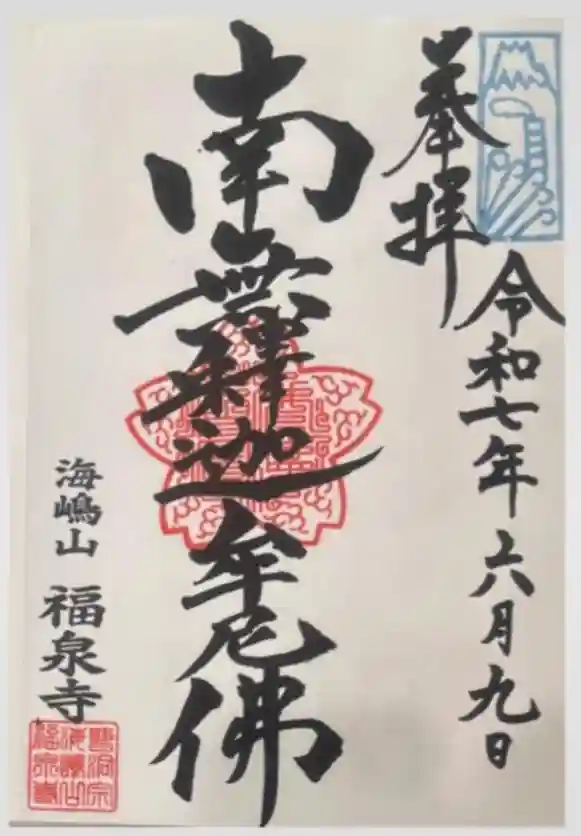 奉拝
令和七年六月九日
南無釋迦牟尼佛
海嶋山 福泉寺
曹洞宗
海嶋山
福泉寺